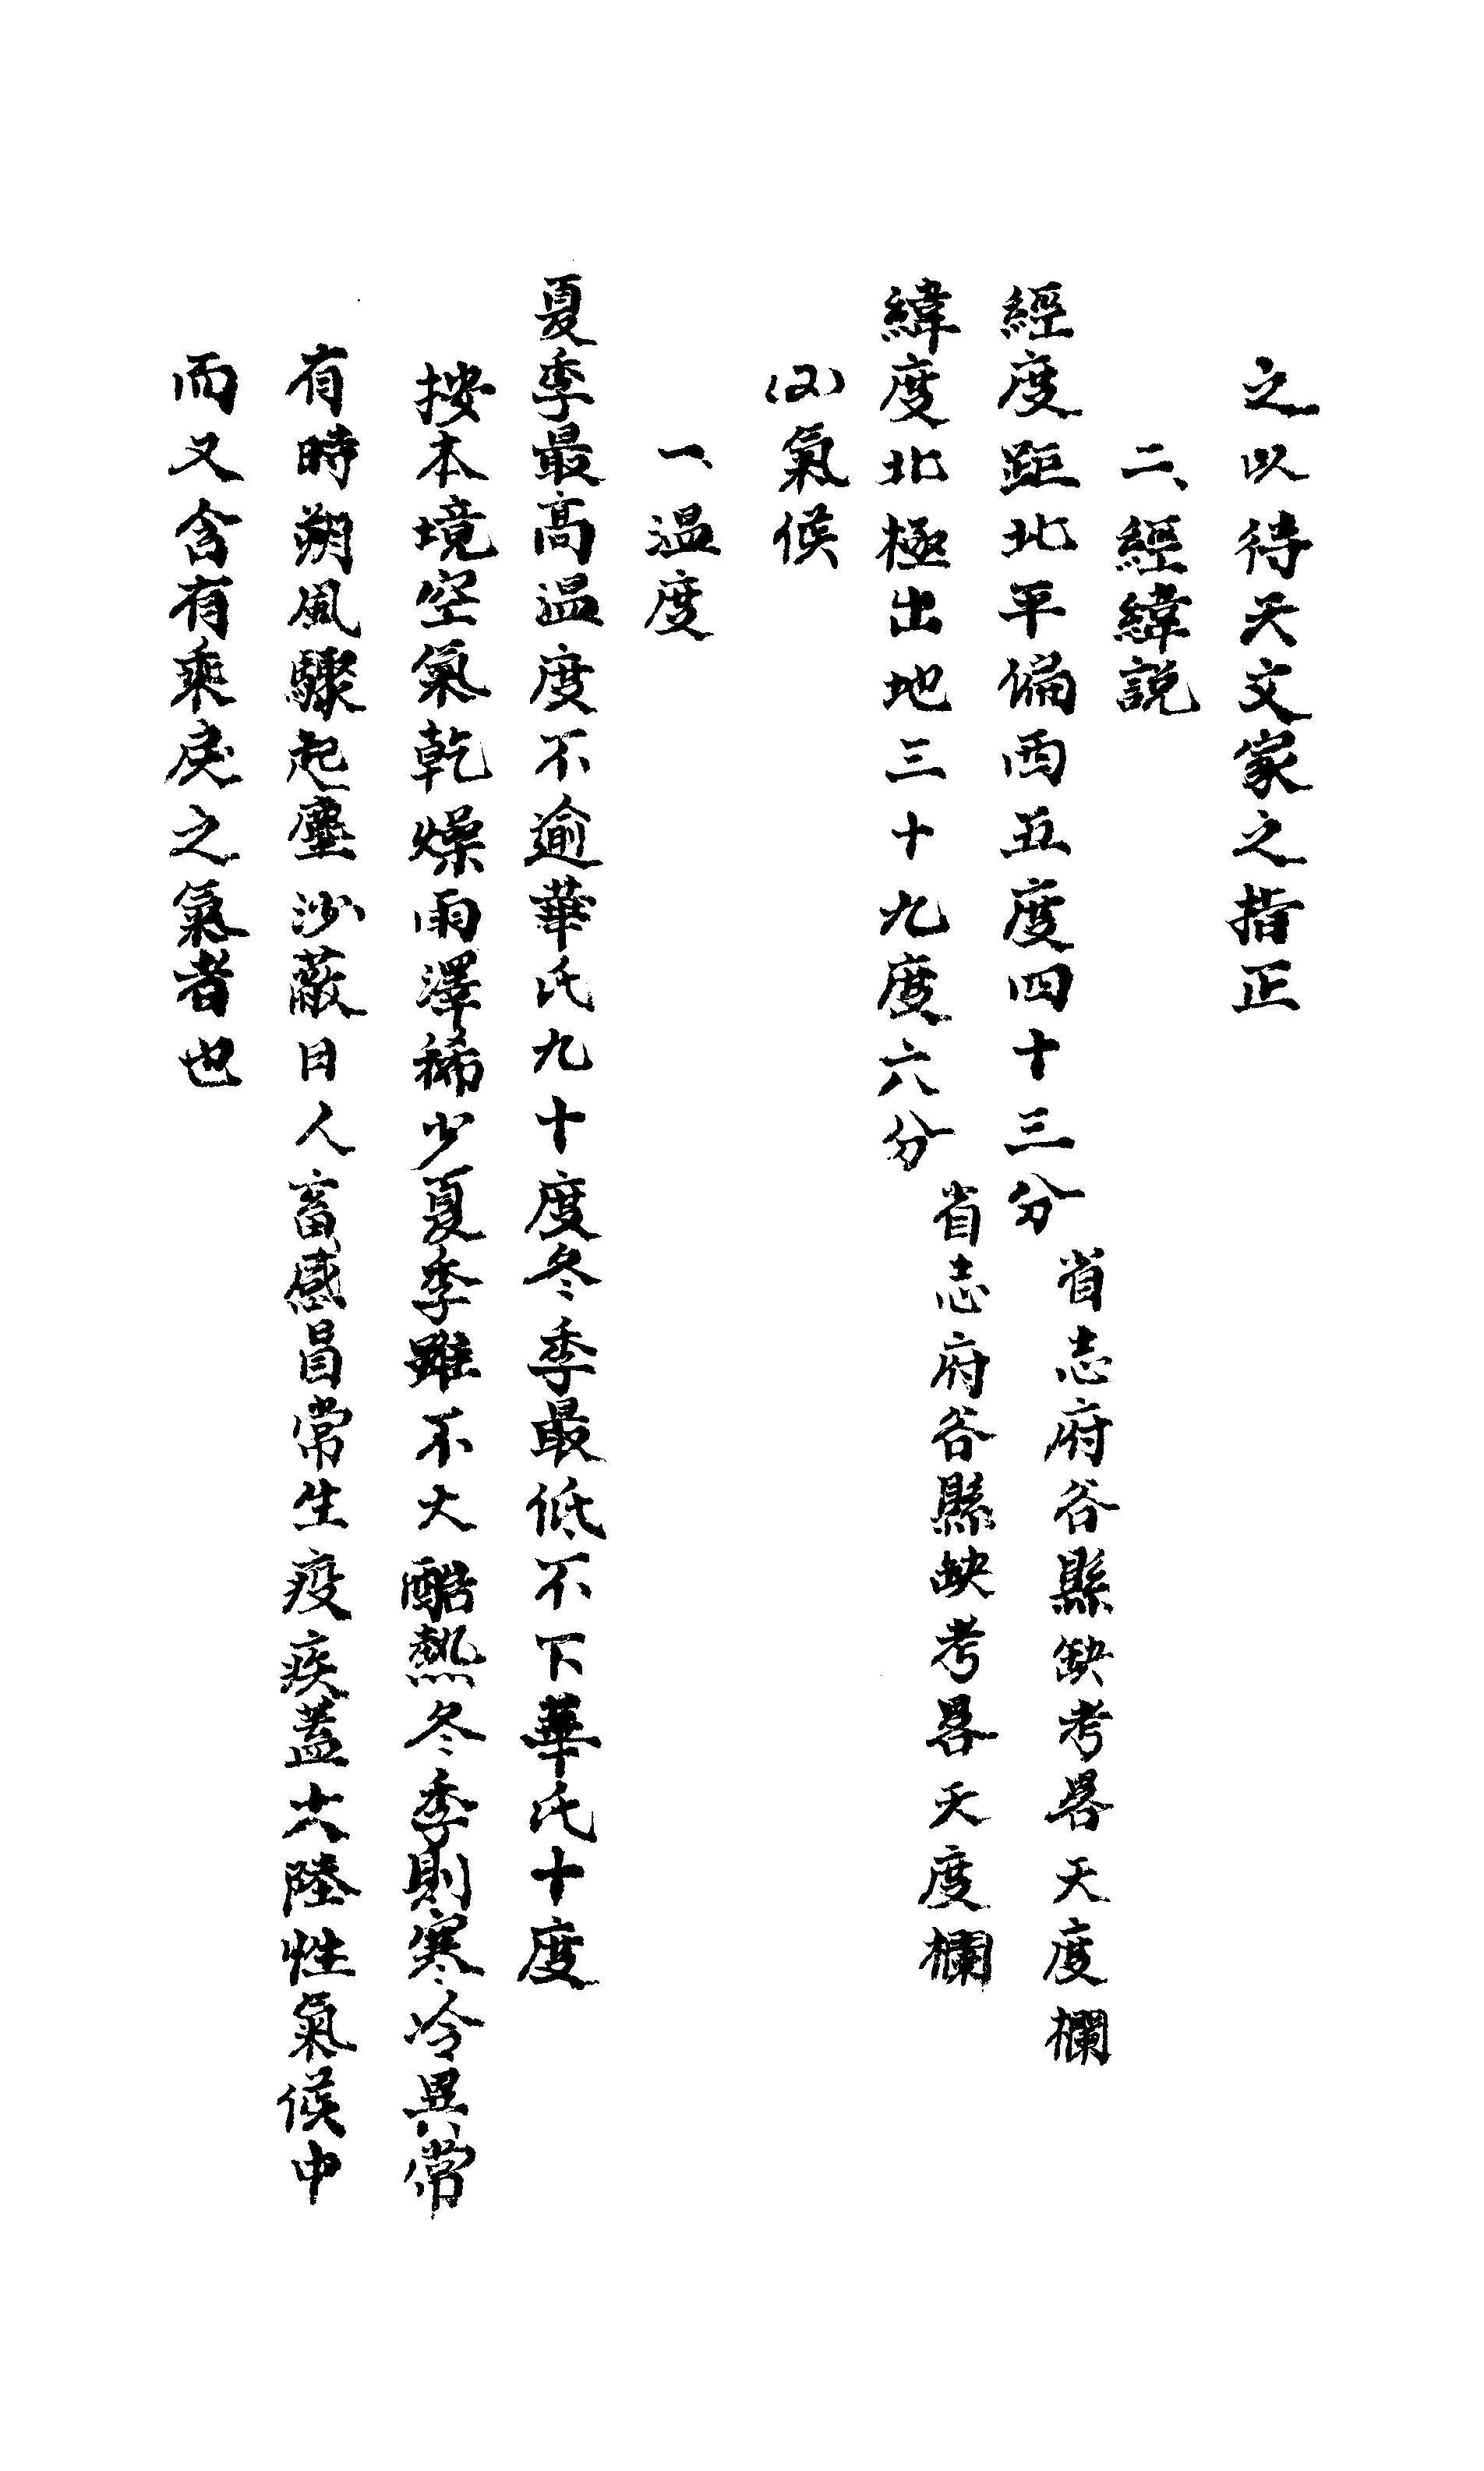 之以待天文家之指正
二、經緯説
經度距北平偏西五度四十三分 省志府谷縣缺考畧天度欄
緯度北極出地三十九度六分 省志府谷縣缺考畧天度欄
(又)氣候
一、温度
夏季最高温度不逾華氏九十度冬季最低不下華氏十度
按本境空氣乾燥雨澤稀少夏季雖不大酷熱冬季則寒冷異常
有時朔風驟起塵沙蔽日人畜感冒常生疫疾蓋大陸性氣候中
而又含有乘戾之氣者也